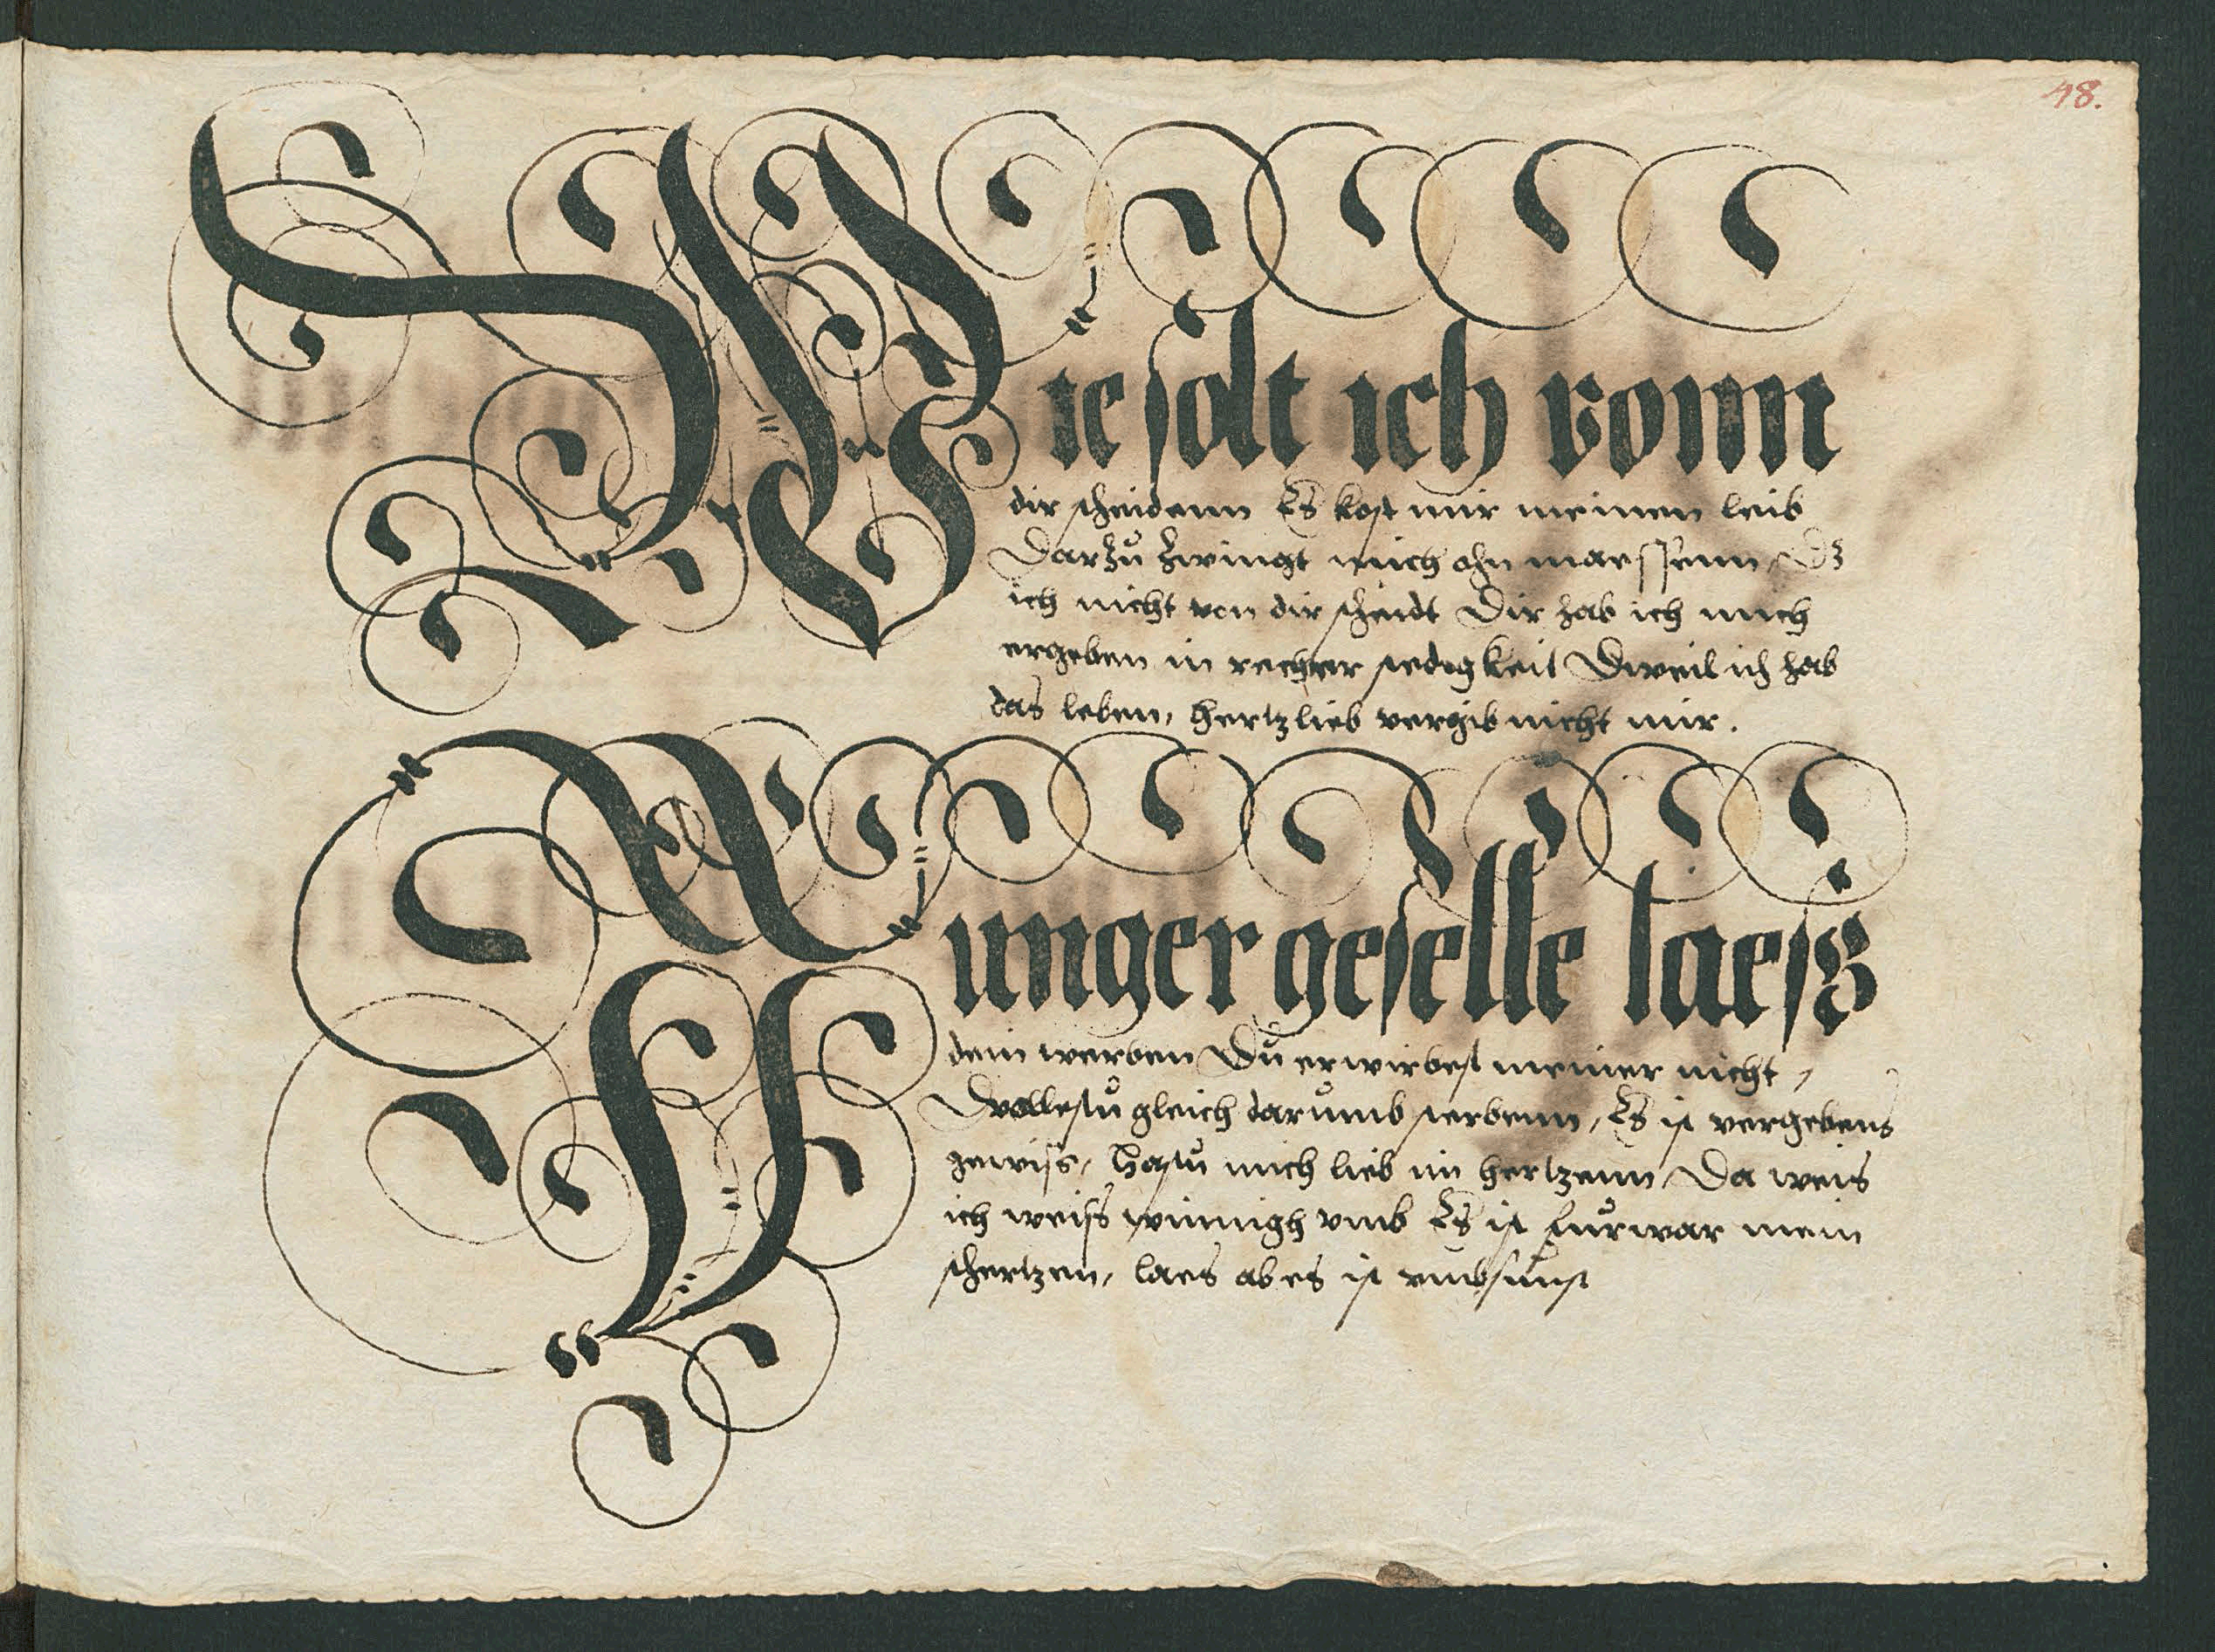 48.
Wie solt ich vonn
dir scheidenn Es kost mir meinen leib
Darzů zwingt mich ohn maessenn, Dz
ich nicht von dir scheidt Dir hab ich mich
ergeben in rechter stedigkeit Dweil ich hab
das leben, hertzlieb vergib nicht mir.
Junger geselle laesz
dein werben Dů erwirbest meiner nicht,
Wollestů gleich darůmb sterbenn, Es ist vergebens
gewiss, Hastů mich lieb im hertzenn, Da weis
ich weiss winnigh vmb Es ist fůrwar mein
schertzen, laes ab es ist vmbsůnst